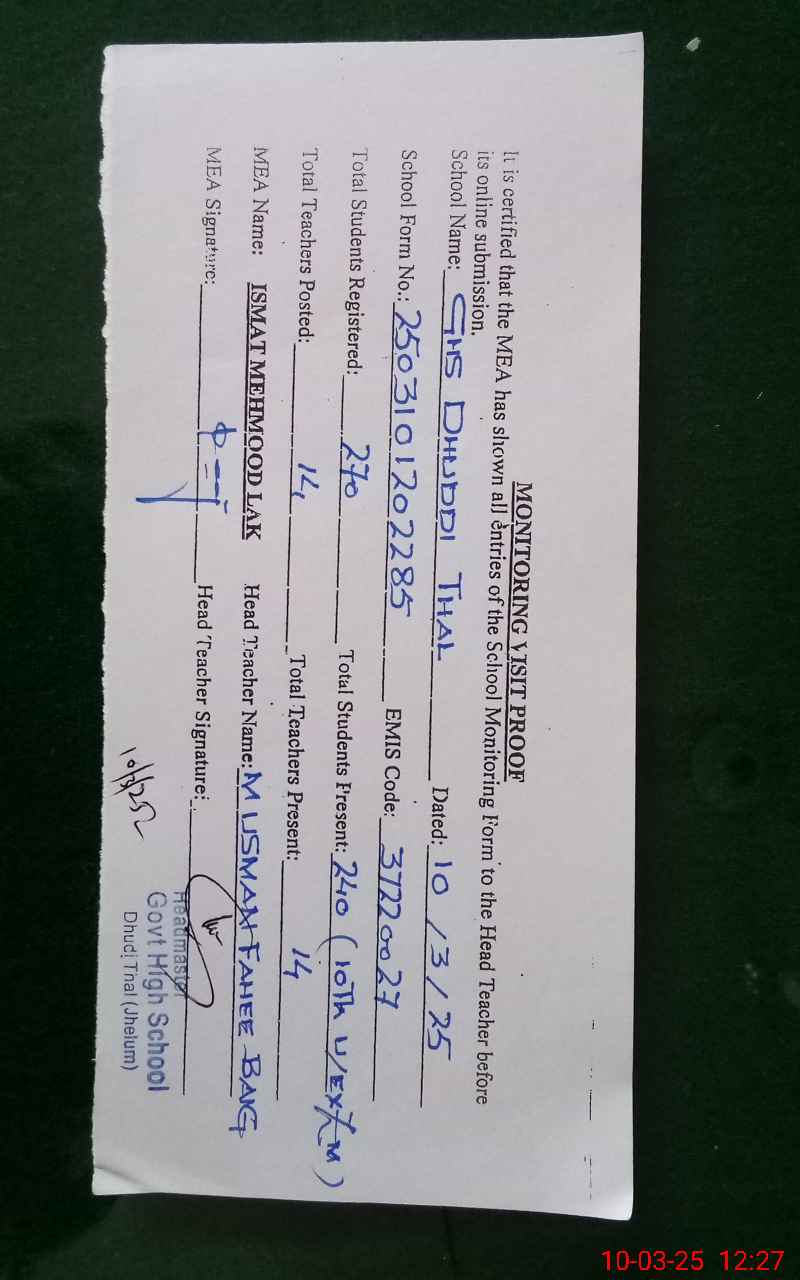 MONITORING VISIT PROOF
It is certified that the MEA has shown all entries of the School Monitoring Form to the Head Teacher before
its online submission.
School Name: GHS DHUDDI THAL Dated: 10/3/25
School Form No.: 2503101202285 EMIS Code: 37220027
Total Students Registered: 270 Total Students Present: 240 (10Th U/EXAM)
Total Teachers Posted: 14 Total Teachers Present: 14
MEA Name: ISMAT MEHMOOD LAK Head Teacher Name: M USMAN FAHEE BAIG
MEA Signature: Head Teacher Signature:
Headmaster
Govt High School
Dhudi Thal (Jhelum)
10-03-25 12:27